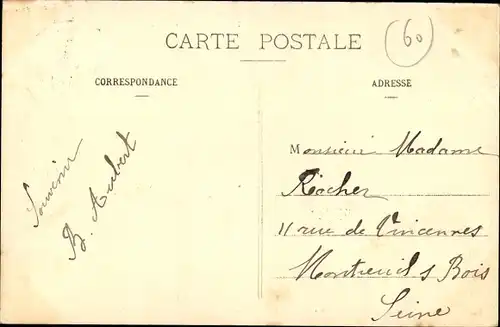 CARTE POSTALE
60
CORRESPONDANCE
ADRESSE
Souvenir
B. Aubert
Monsieur Madame
Rocher
11 rue de Vincennes
Montreuil s Bois
Seine